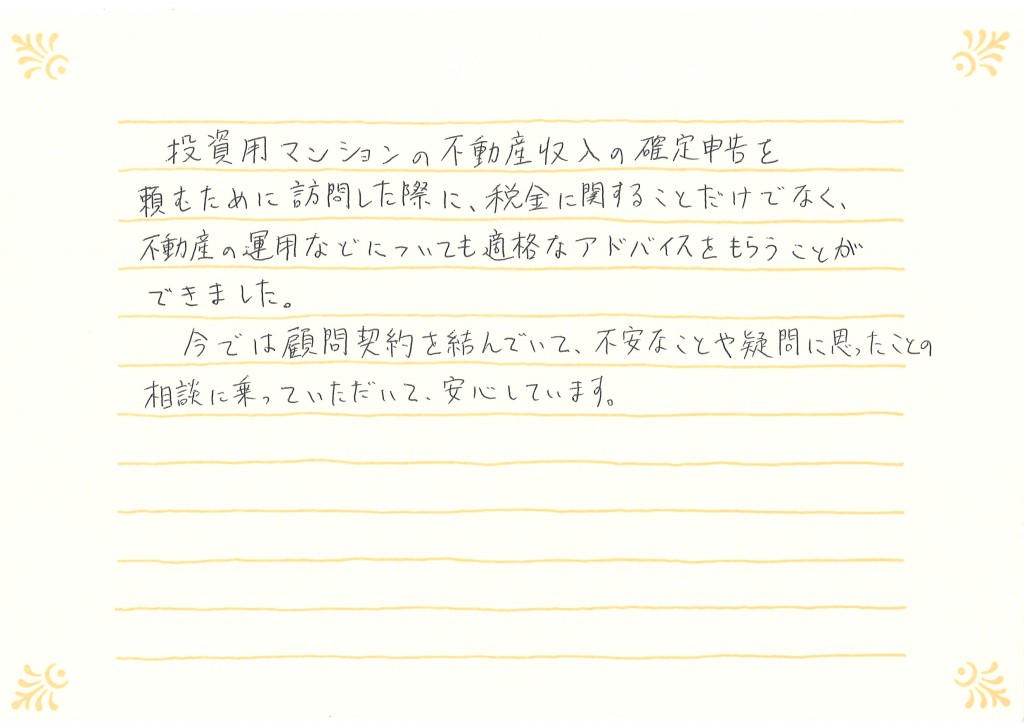 投資用マンションの不動産収入の確定申告を
頼むために訪問した際に、税金に関することだけでなく、
不動産の運用などについても適格なアドバイスをもらうことが
できました。
今では顧問契約を結んでいて、不安なことや疑問に思ったことの
相談に乗っていただいて、安心しています。